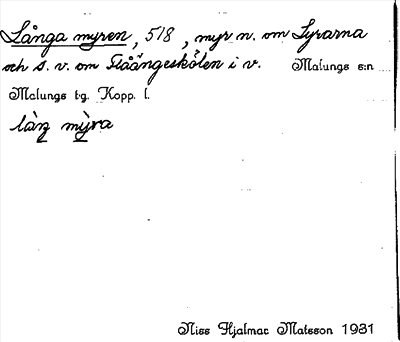 Långa myren, 518, myr n. om Lyrarna
och s. v. om Flåängeskölen i v. Malungs s:n
Malungs tg. Kopp. l.
làŋ mỳra
Niss Hjalmar Matsson 1931